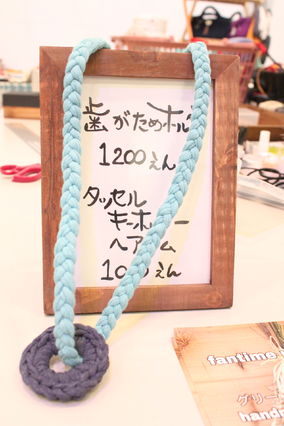 歯がためホル
1200えん
タッセル
キーホ
ヘア ム
10 えん
fantime
グリー
handm